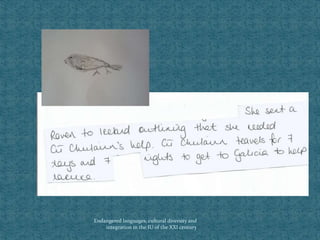 She sent a
Raven to Iceland outlining that she needed
Cú Chulainn's help. Cú Chulainn travels for 7
days and 7 nights to get to Galicia to help
Endangered languages, cultural diversity and
integration in the EU of the XXI century